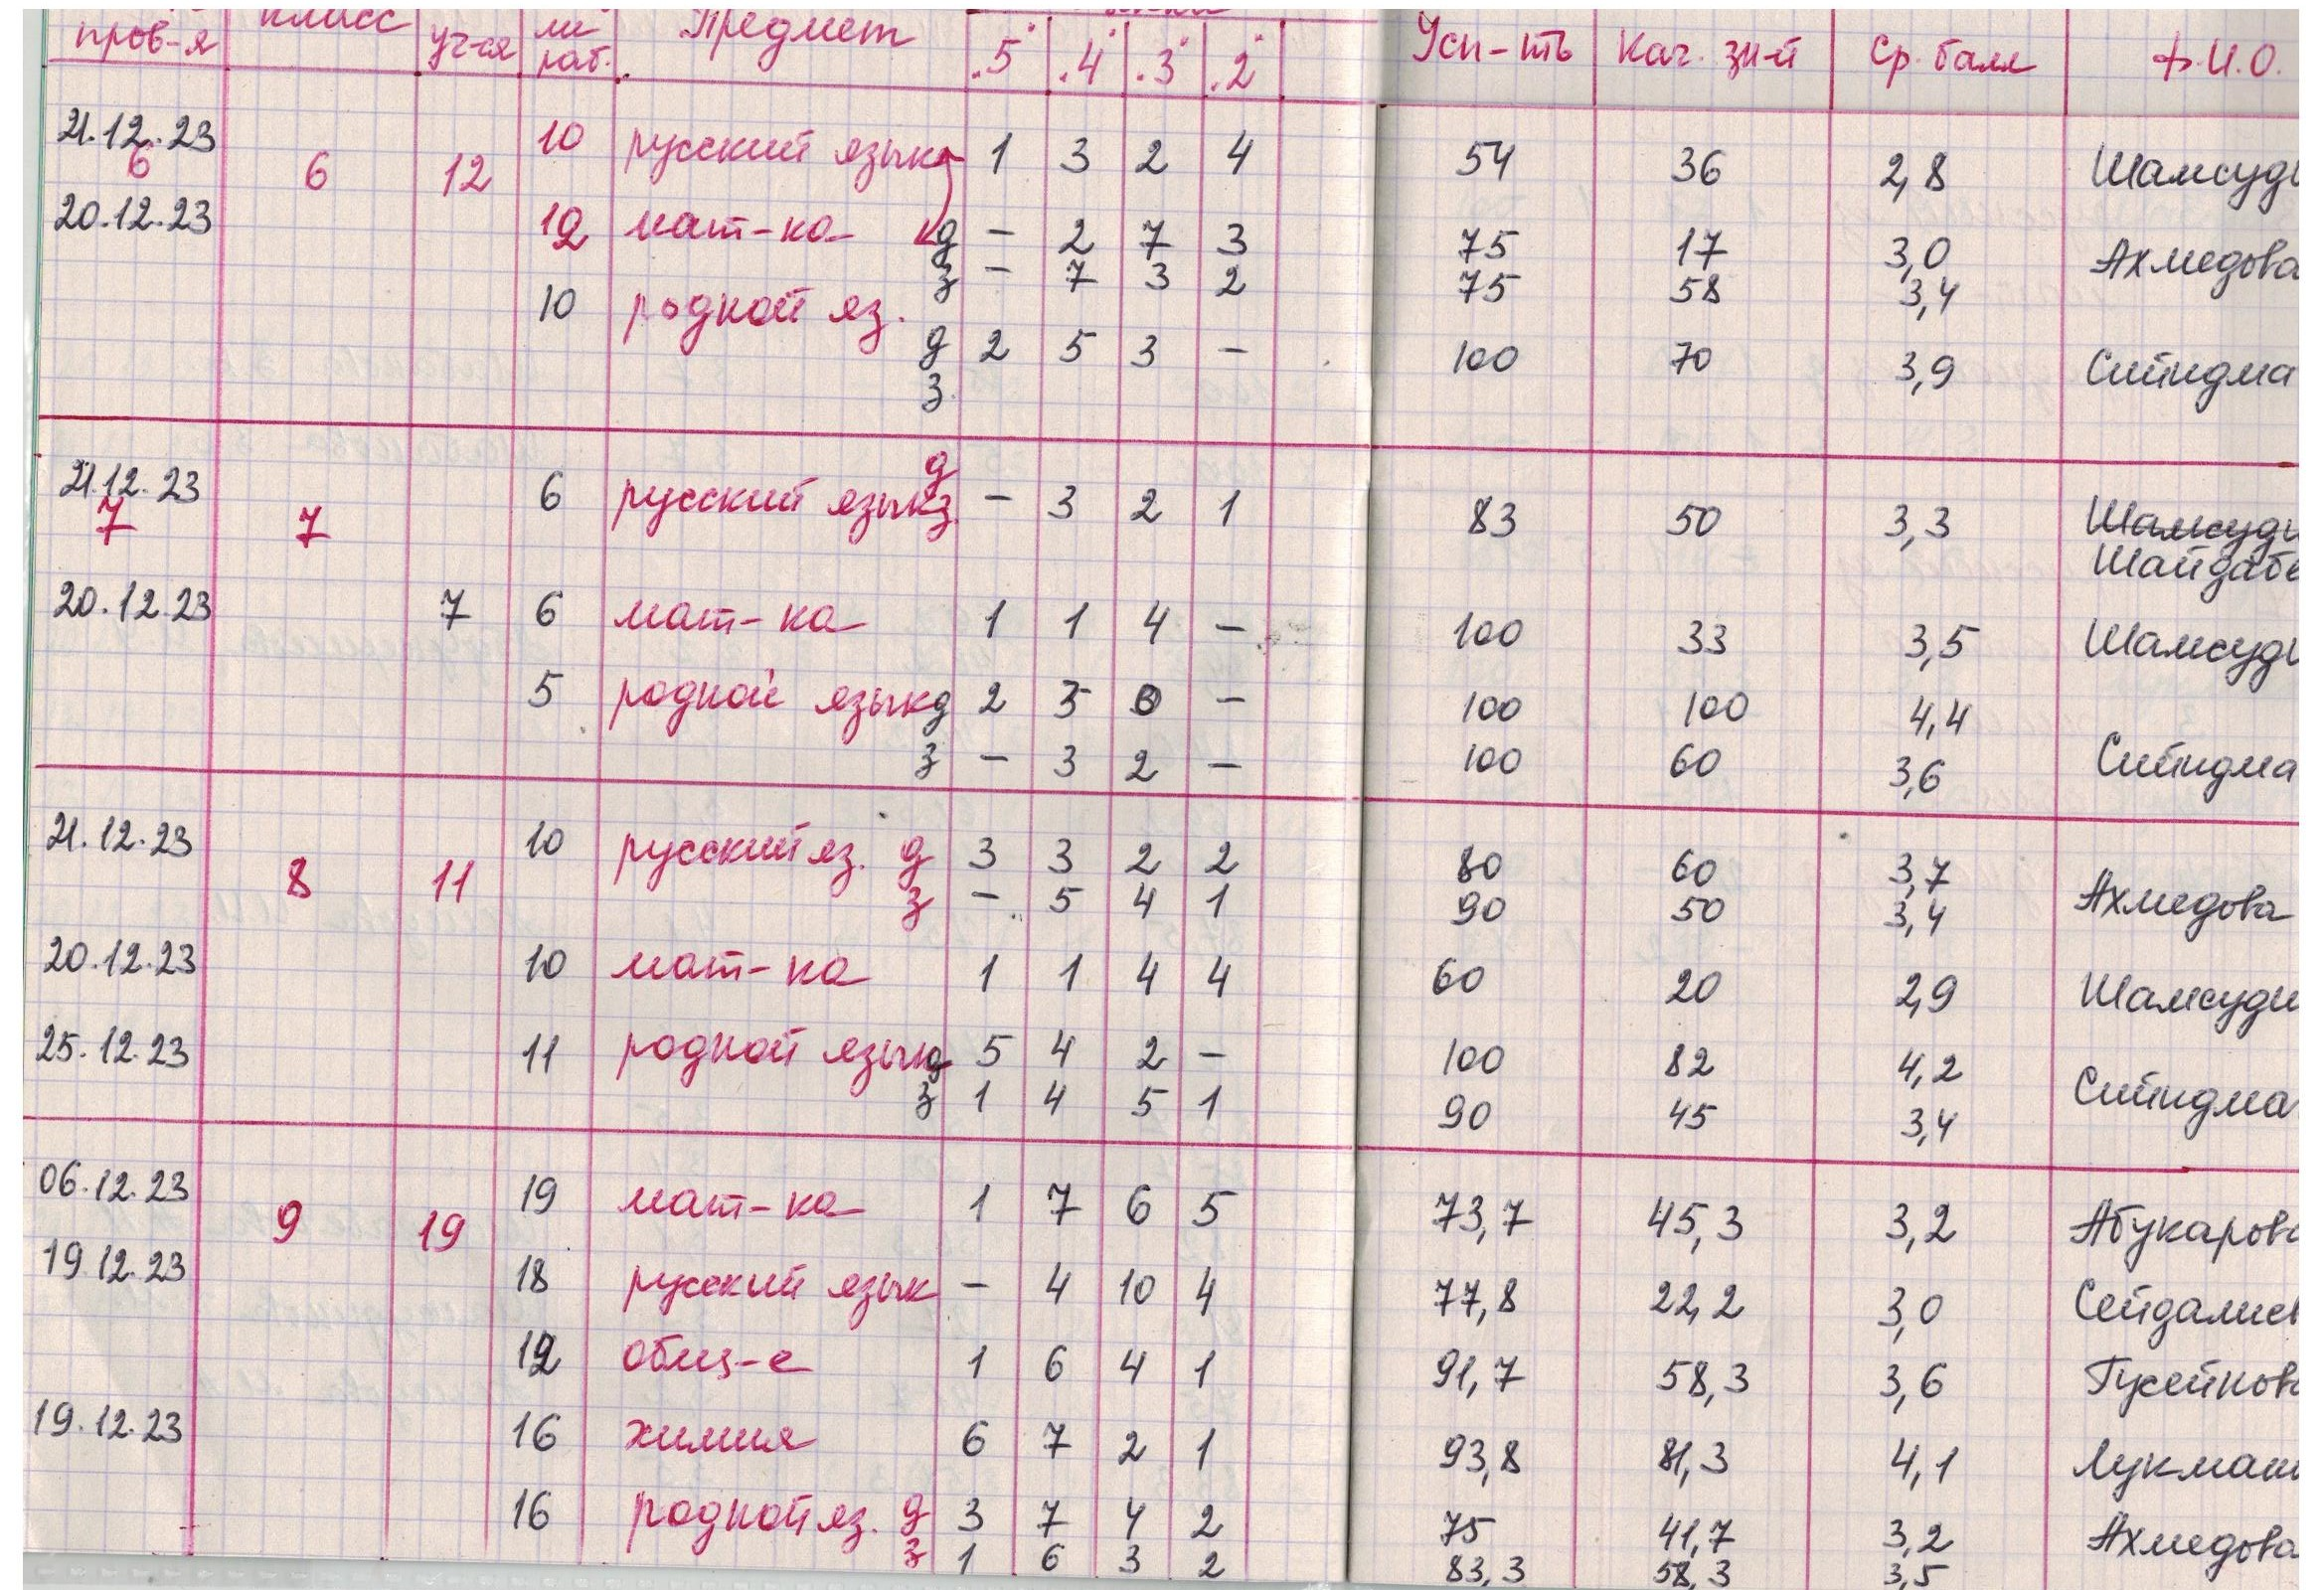 пров-я класс уч-ся раб. Предмет "5" "4" "3" "2" Усп-ть Кач. зн-й Ср. балл Ф.И.О.
21.12.23 6 6 12 10 русский язык 1 3 2 4 54 36 2,8 Шамсуди
20.12.23 12 мат-ка д - 2 7 3 75 17 3,0 Ахмедова
з - 7 3 2 75 58 3,4
10 родной яз.
д 2 5 3 - 100 70 3,9 Сийидма
з
21.12.23 7 7 6 русский язык д з - 3 2 1 83 50 3,3 Шамсуди
Шайдабе
20.12.23 7 6 мат-ка 1 1 4 - 100 33 3,5 Шамсуди
5 родной язык д 2 3 0 - 100 100 4,4
з - 3 2 - 100 60 3,6 Сийидма
21.12.23 8 11 10 русский яз. д 3 3 2 2 80 60 3,7
з - 5 4 1 90 50 3,4 Ахмедова
20.12.23 10 мат-ка 1 1 4 4 60 20 2,9 Шамсуди
25.12.23 11 родной язык д 5 4 2 - 100 82 4,2
з 1 4 5 1 90 45 3,4 Сийидма
06.12.23 9 19 19 мат-ка 1 7 6 5 73,7 45,3 3,2 Абукарова
19.12.23 18 русский язык - 4 10 4 77,8 22,2 3,0 Сейдалиев
12 общ-е 1 6 4 1 91,7 58,3 3,6 Гусейнова
19.12.23 16 химия 6 7 2 1 93,8 81,3 4,1 Лукман
16 родной яз. д 3 7 4 2 75 41,7 3,2 Ахмедова
з 1 6 3 2 83,3 58,3 3,5